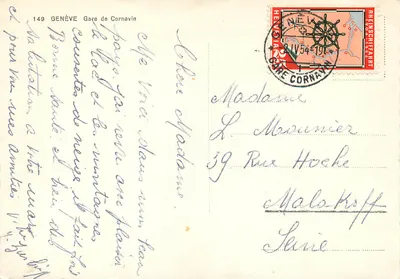 149 GENÈVE Gare de Cornavin
Chère Madame,
Me voici dans mon beau
pays, j'ai revu avec plaisir
le lac et les montagnes
couvertes de neige. Il fait
Bonne santé et bien des
Salutations à votre mari
et pour vous mes amitiés
HELVETIA
RHEINSCHIFFAHRT
GENÈVE
IV 54
GARE CORNAVIN
Madame
L. Mounier
39 Rue Hoche
Malakoff
Seine